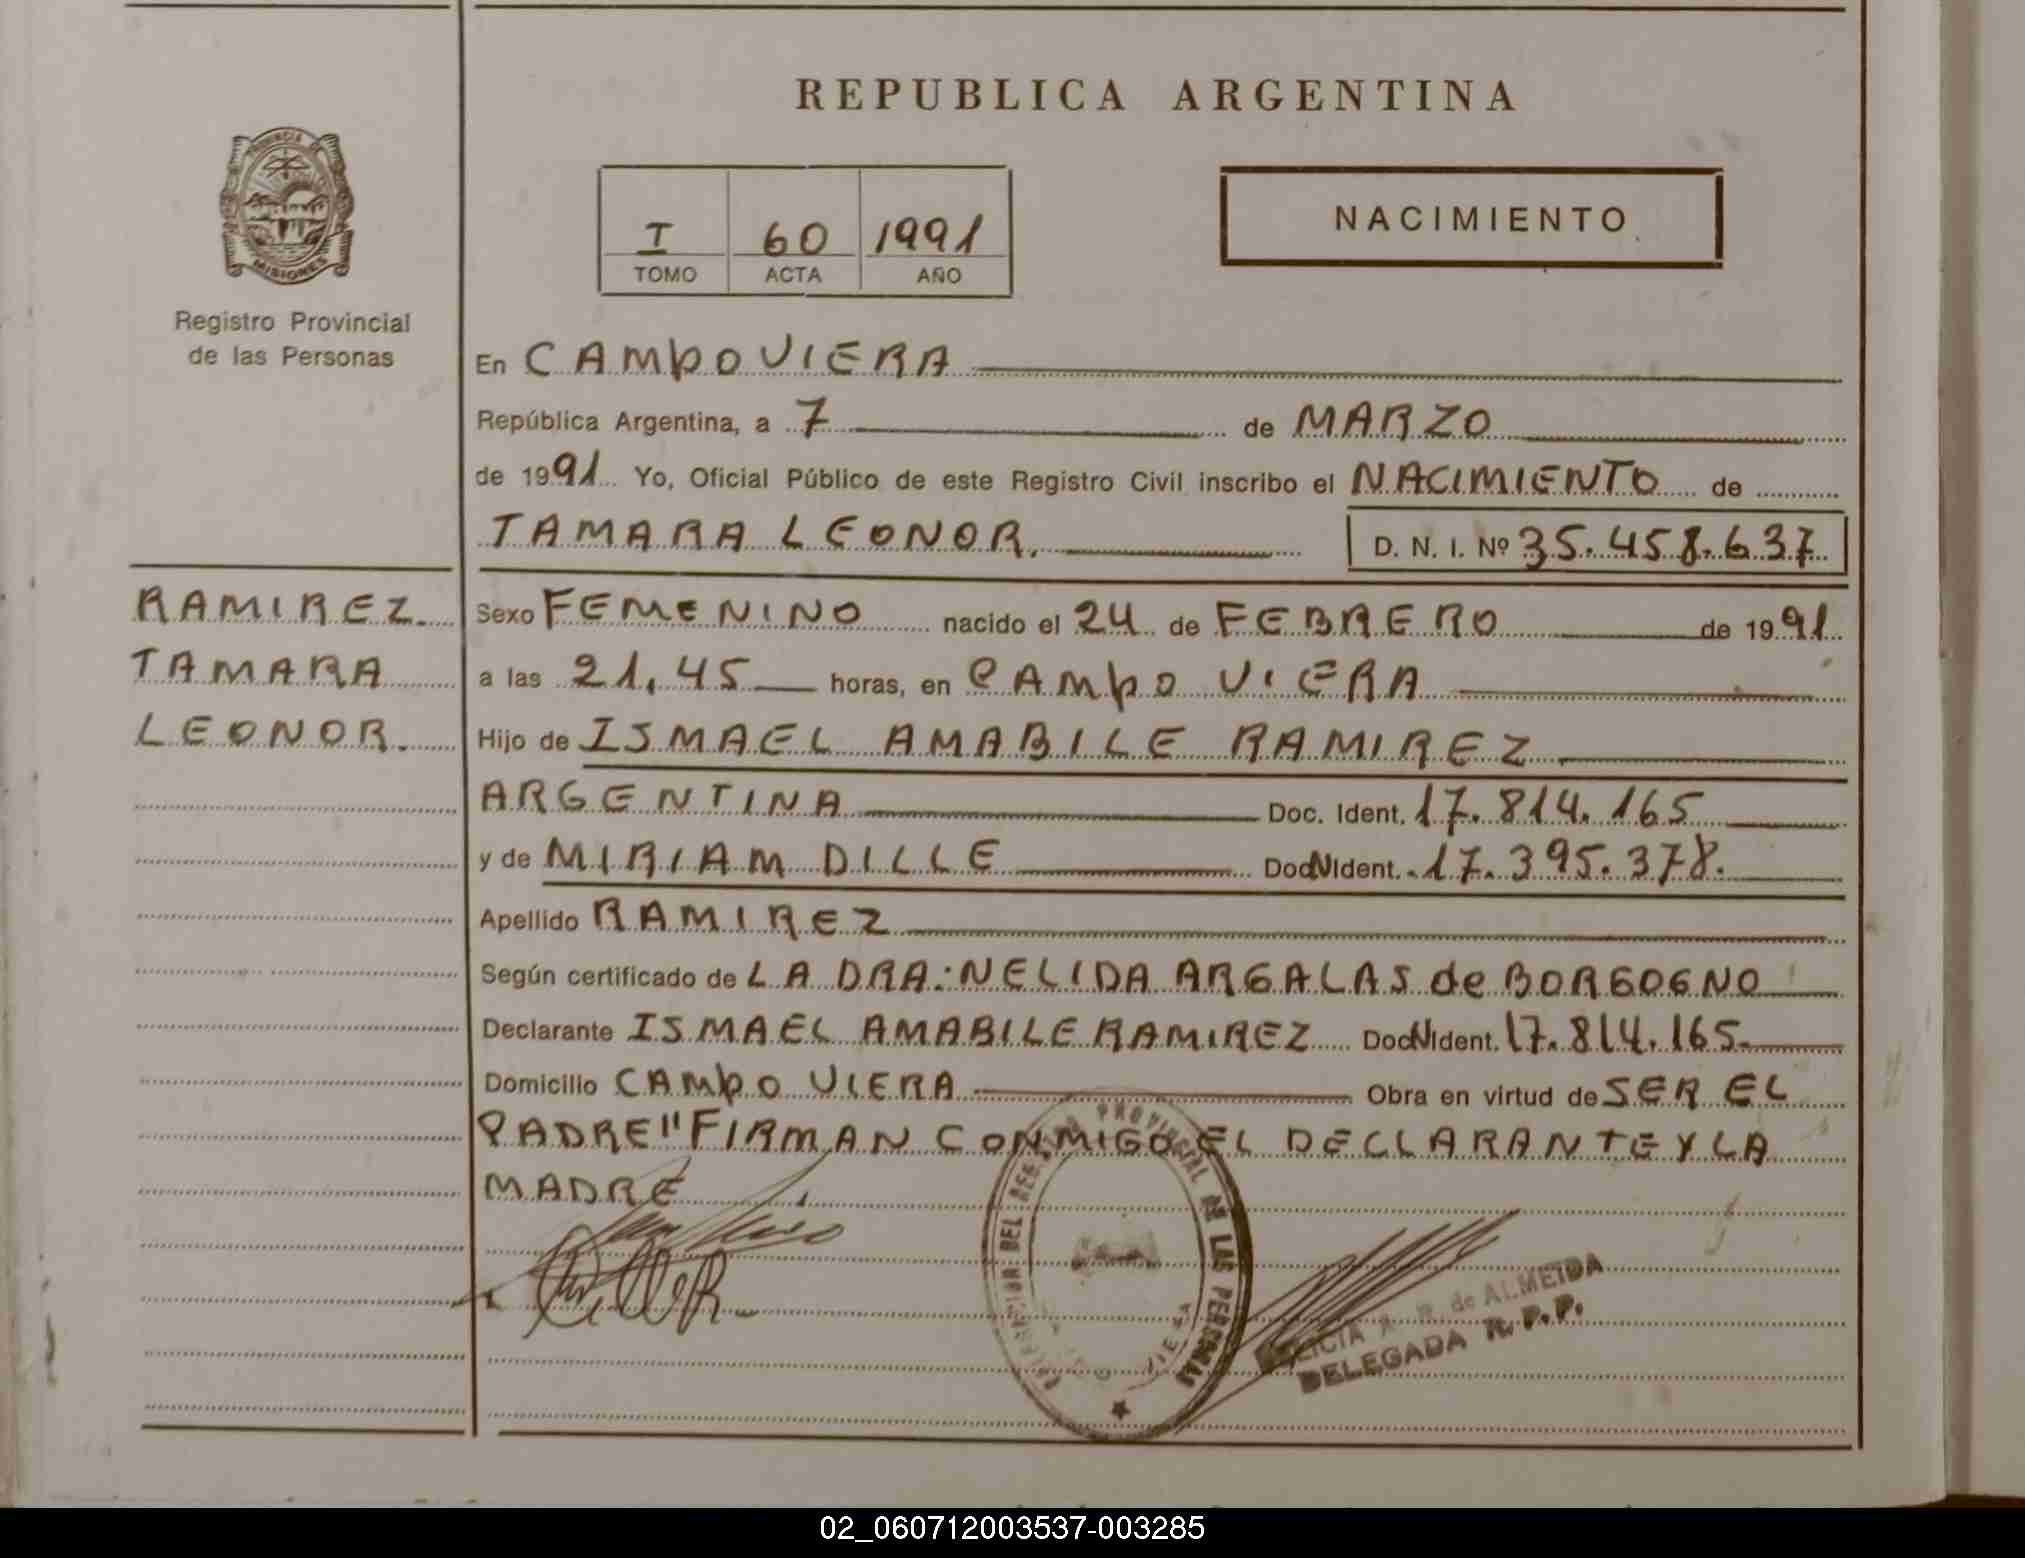 REPUBLICA ARGENTINA
PROVINCIA DE
MISIONES
Registro Provincial
de las Personas
I 60 1991
TOMO ACTA AÑO
NACIMIENTO
En CAMPO VIERA
República Argentina, a 7 de MARZO
de 1991 Yo, Oficial Público de este Registro Civil inscribo el NACIMIENTO de
TAMARA LEONOR. D. N. I. Nº 35.458.637
RAMIREZ.
TAMARA
LEONOR.
Sexo FEMENINO nacido el 24 de FEBRERO de 1991
a las 21,45 horas, en CAMPO VIERA
Hijo de ISMAEL AMABILE RAMIREZ
ARGENTINA Doc. Ident. 17.814.165
y de MIRIAM DILLE Doc. Ident. 17.395.378.
Apellido RAMIREZ
Según certificado de LA DRA: NELIDA ARGALAS de BORGOGNO
Declarante ISMAEL AMABILE RAMIREZ Doc. Ident. 17.814.165.
Domicilio CAMPO VIERA Obra en virtud de SER EL
PADRE" FIRMAN CONMIGO EL DECLARANTE Y LA
MADRE
DEL REGISTRO PROVINCIAL DE LAS PERSONAS
R. de ALMEIDA
DELEGADA R. P. P.
02_060712003537-003285